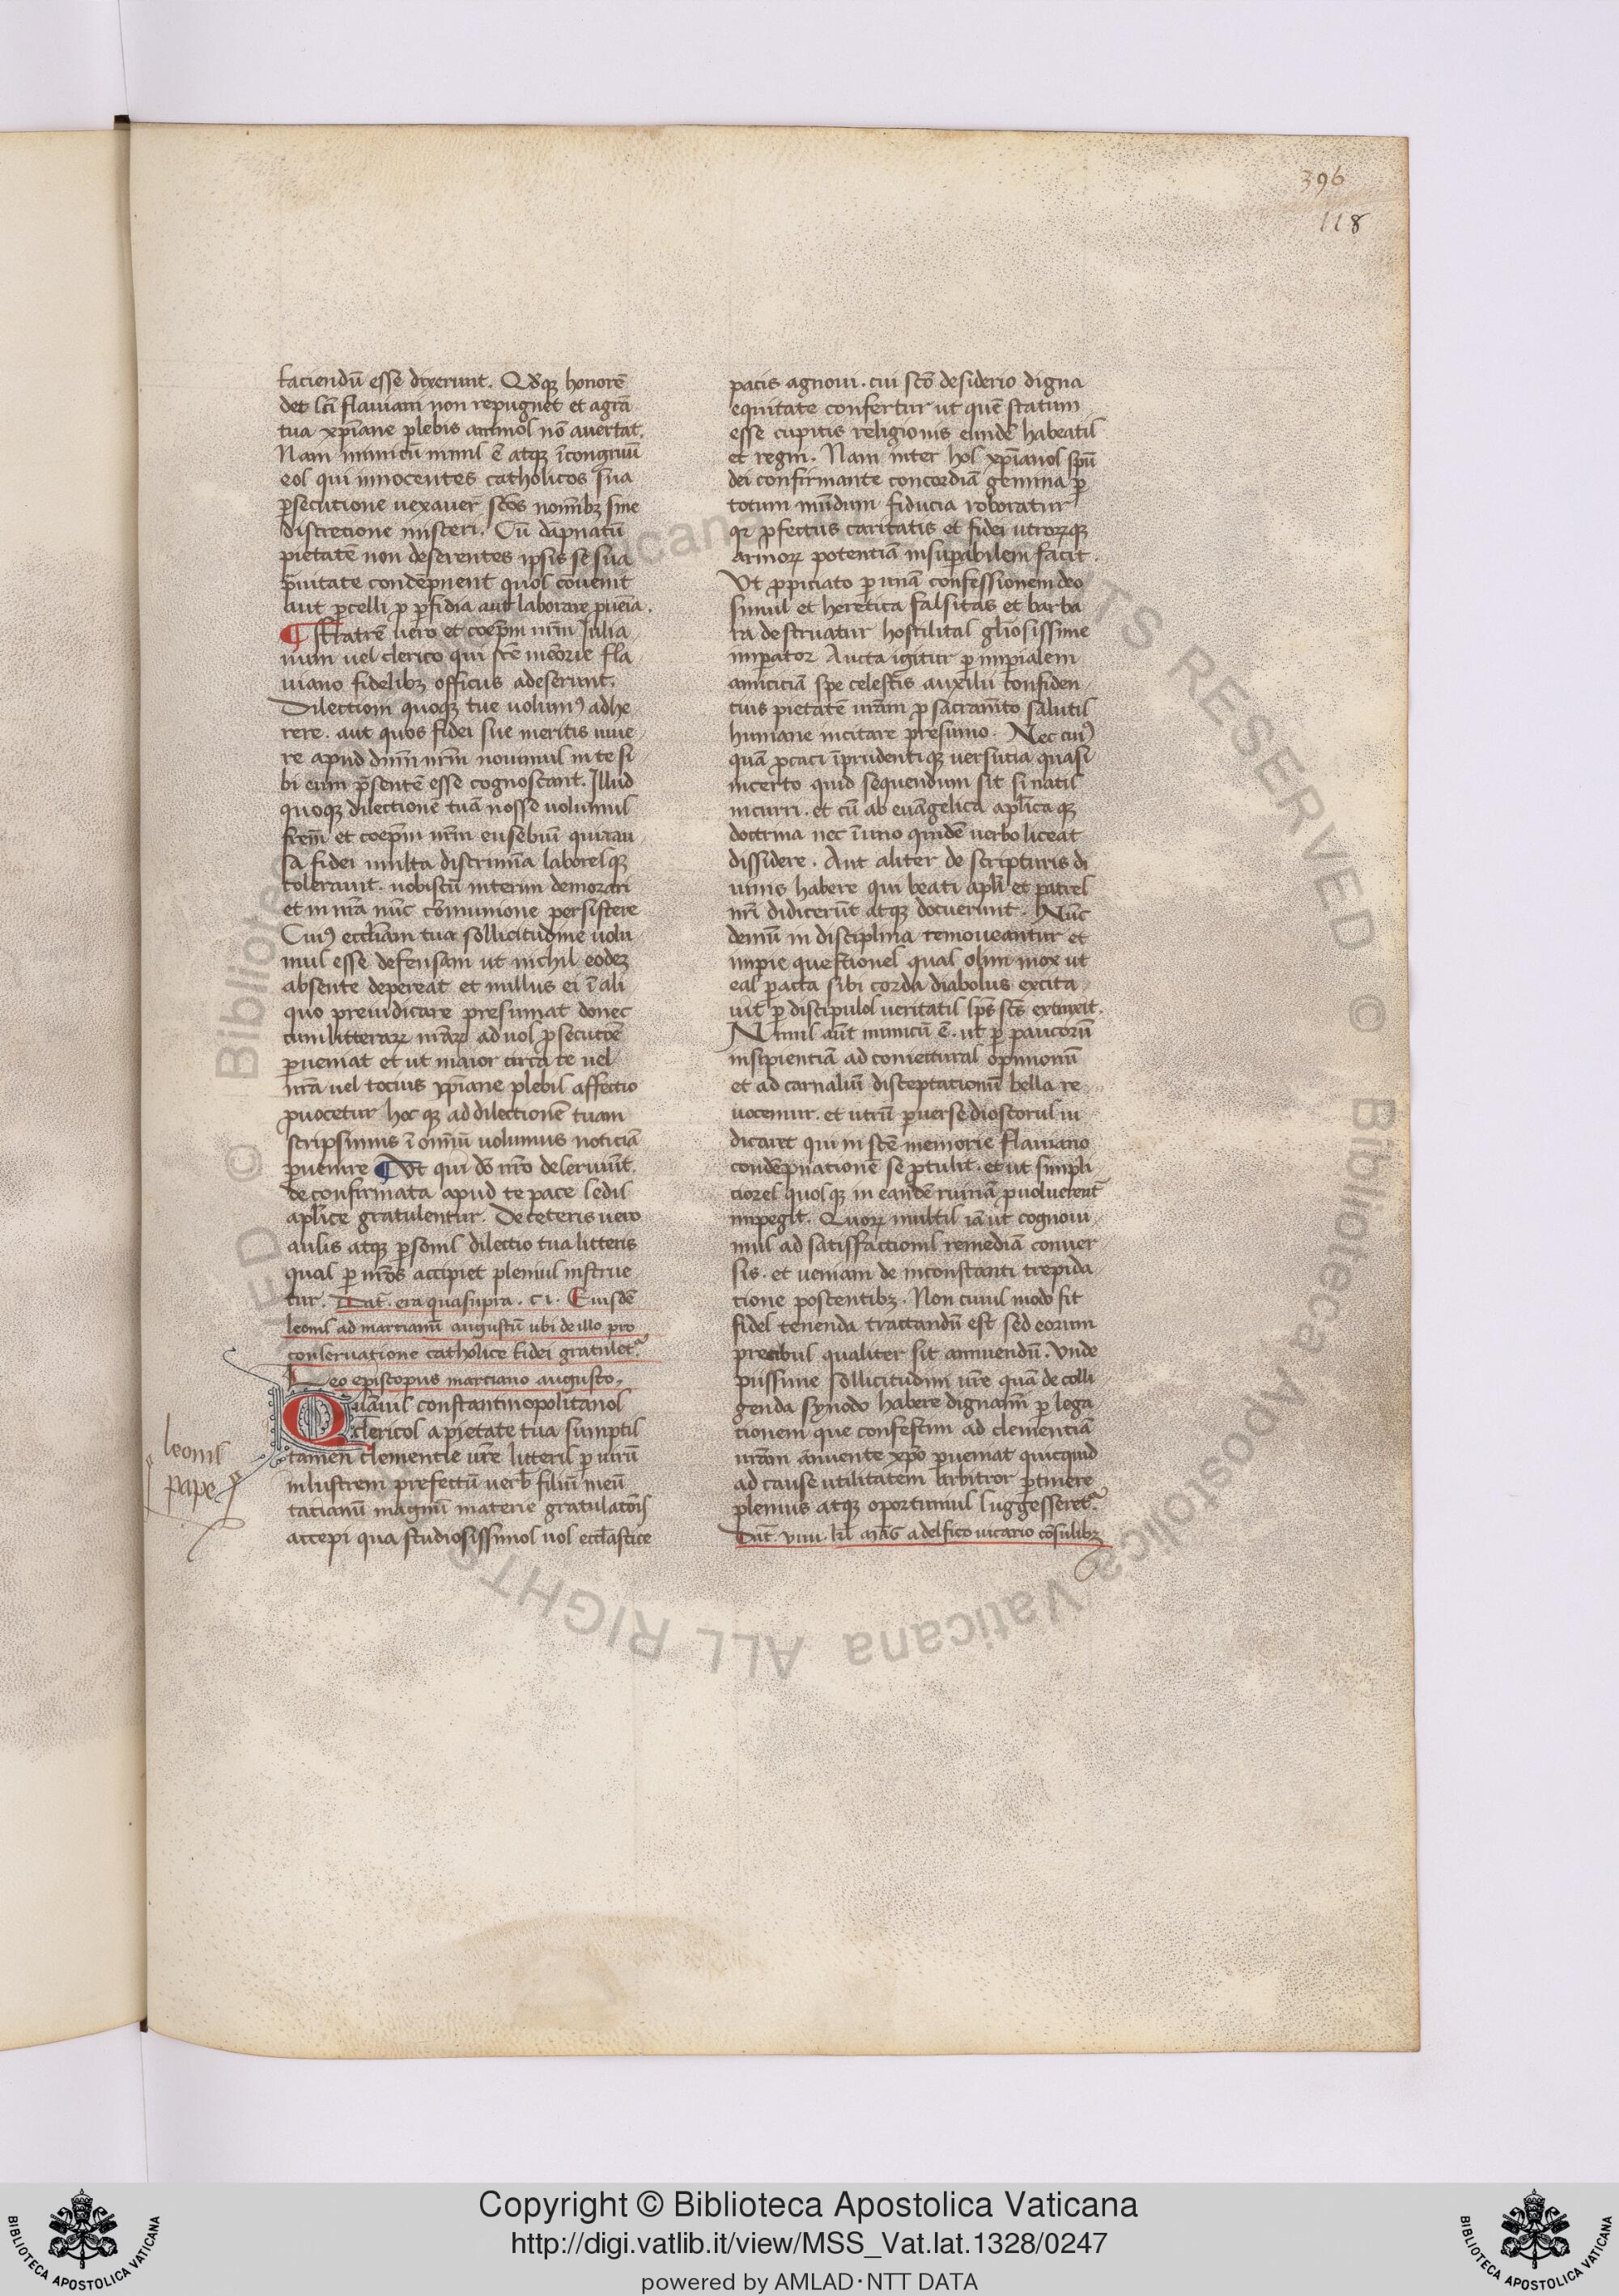 396
118
faciendū esse dixerunt. Qd̄q; honorē
det sc̄i flauiani non repugnet et agrā
tua xp̄iane plebis animos nō auertat.
Nam inimicū nimis ē atq; īcongruū
eos qui innocentes catholicos sua
ꝑsecutione uexauer̄ sc̄os nom̄ibꝫ sine
discretione misceri. Cū dāpnatū
pietatē non deserentes ipsis se sua
prauitate condēpnent quos cōuenit
aut ꝑcelli ꝓ ꝑfidia aut laborare
¶ ffratrē uero et coep̄m nr̄m Iulia
num uel clerico qui sc̄e meōrie fla
uiano fidelibꝫ officiis adeserunt.
Dilectiom̄ quoqꝫ tue uolumꝰ adhe
rere. aut quos fidei sue meritis uiue
re apud dn̄m nr̄m nouimus in te si
bi eum p̄sentē esse cognoscant. Illud
quoqꝫ dilectionē tuā nosse uolumus
frem̄ et coep̄m nr̄m eusebiū qui cau
sa fidei multa discrimīa laboresqꝫ
tolerauit. nobiscū interim demorari
et in nr̄a nūc cōmunione persistere
Cuiꝰ eccl̄iam tua sollicitudine uolu
mus esse defensam ut nichil eodeꝫ
absente depereat et nullus ei ī ali
quo preiudicare presumat donec
cum litterarꝝ nr̄arꝝ ad uos ꝓsecutōe
ꝑueniat et ut maior circa te uel
nr̄a uel tocius xp̄iane plebis affectio
ꝓuocetur hoc qꝫ ad dilectionē tuam
scripsimus ī omniū uolumus noticiā
ꝑuenire ¶ Vt qui dō nr̄o deseruiūt.
de confirmata apud te pace sedis
apl̄ice gratulentur. De ceteris uero
aulis atqꝫ ꝑsonis dilectio tua litteris
quas ꝑ nr̄os accipiet plenius instrue
tur. Dat̄. era qua supra. CI. Eiusdē
leonis ad marcianū augustū ubi de illo pro
conseruatione catholice fidei gratulet᷑
Leo episcopus marciano augusto,
Quāuis constantinopolitanos
clericos a pietate tua sumptis
tamen clementie ur̄e litteris ꝑ uirū
inlustrem prefectū uerb̄ filiū meū
tatianū magnū materie gratulatōis
accepi qua studiosissimos uos eccl̄astice
leonis
pape
pacis agnoui. cui sc̄o desiderio digna
equitate confertur ut quē statum
esse cupitis religionis eundē habeatis
et regni. Nam inter hos xp̄ianos sp̄u
dei confirmante concordiā gemina ꝑ
totum mūdum fiducia roboratur
qꝛ ꝓfectus caritatis et fidei utrorꝝqꝫ
armorꝝ potentiā insuꝑabilem facit.
Vt ꝓpiciato ꝑ unā confessionem deo
simul et heretica falsitas et barba
ra destruatur hostilitas gl̄iosissime
imꝑator Aucta igitur ꝑ imꝑialem
amiciciā spe celestis auxilii confiden
cius pietatē ur̄am ꝓ sacramēto salutis
humane incitare presumo. Nec cuiꝰ
quā ꝓcaci īprudentiqꝫ uersutia quasi
incerto quid sequendum sit sinatis
incurri. et cū ab euāgelica apl̄ica qꝫ
doctrina nec ī uno quidē uerbo liceat
dissidere. Aut aliter de scripturis di
uinis habere qui beati apl̄i et patres
nr̄i didicerūt atqꝫ docuerunt. Nūc
demū in disciplina remoueantur et
impie questiones quas olim mox ut
eas ꝑacta sibi corda diabolus excita
uit ꝑ discipulos ueritatis sp̄s sc̄s extinxit.
Nimis aūt inimicū ē. ut ꝑ paucorū
insipientiā ad coniecturas opinionū
et ad carnaliū disceptationū bella re
uocemur. et utrū ꝑuerse dioscorus iu
dicaret qui in sc̄e memorie flauiano
condēpnationē se ꝓtulit. et ut simpli
ciores quosqꝫ in eandē ruinā ꝓuoluerent᷑
impegit. Quorꝝ multis iā ut cognoui
mus ad satisfactionis remediā conuer
sis. et ueniam de inconstanti trepida
tione poscentibꝫ. Non cuius modo sit
fides tenenda tractandū est sed eorum
precibus qualiter sit annuendū. Vnde
piissime sollicitudini ur̄e quā de colli
genda synodo habere dignam̄ ꝑ lega
tionem que confestim ad clementiā
ur̄am annuente xp̄o ꝑueniat quicquid
ad cause utilitatem arbitror ꝑtinere
plenius atqꝫ oportunius suggesseret᷑.
Dat̄. viiii. kl̄. mag̅ adelfico uicario cōsulibꝫ
Copyright © Biblioteca Apostolica Vaticana
http://digi.vatlib.it/view/MSS_Vat.lat.1328/0247
powered by AMLAD·NTT DATA
BIBLIOTECA APOSTOLICA VATICANA
BIBLIOTECA APOSTOLICA VATICANA